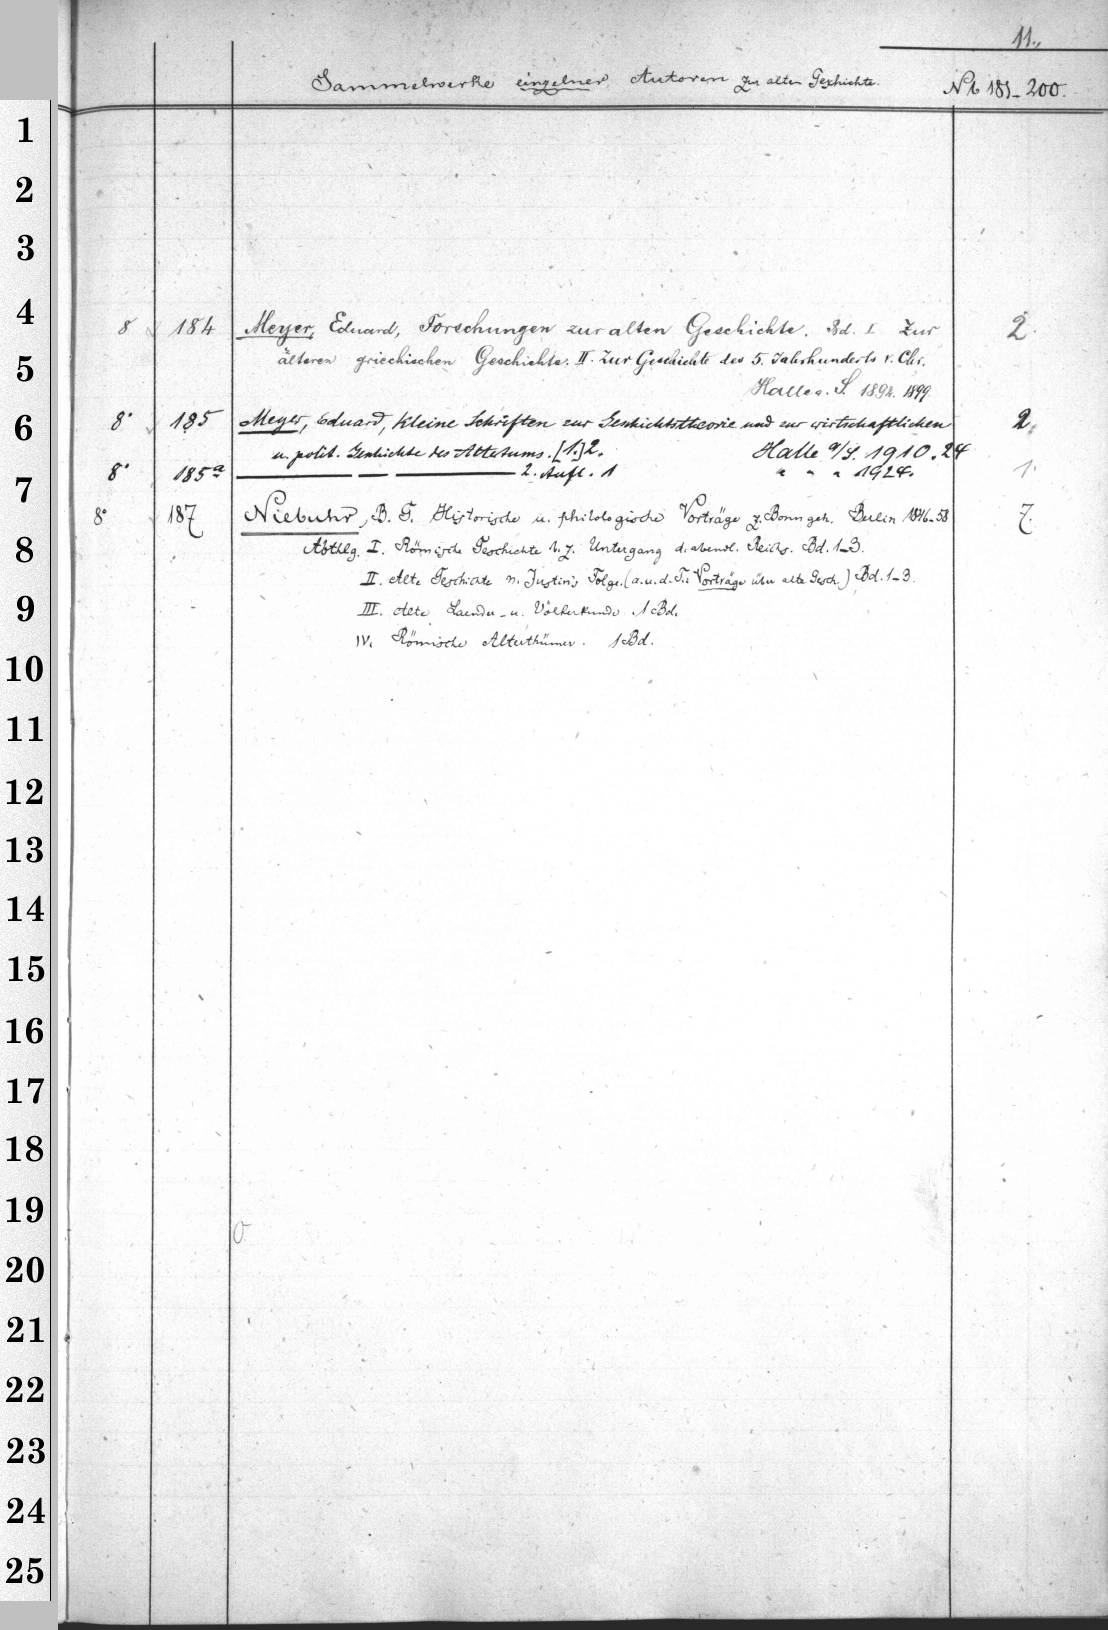 11.,
Sammelwerke einzelner Autoren zur alten Geschichte. Nb 181-200.
1
2
3
4
8 184 Meyer, Eduard, Forschungen zur alten Geschichte. Bd. I. Zur 2.
älteren griechischen Geschichte. II. Zur Geschichte des 5. Jahrhunderts v. Chr.
5
Halle a. S. 1892. 1899
6
8° 185 Meyer, Eduard, Kleine Schriften zur Geschichtstheorie und zur wirtschaftlichen 2.
u. polit. Geschichte des Altertums. [1.] 2. Halle a/S. 1910. 24
8° 185a — — — 2. Aufl. 1 " " " 1924. 1.
7
8° 187 Niebuhr, B. G. Historische u. philologische Vorträge z. Bonn geh. Berlin 1846-58 7.
8
Abthlg. I. Römische Geschichte b. z. Untergang d. abendl. Reichs. Bd. 1-3.
II. Alte Geschichte n. Justin's Folge. (a. u. d. T.: Vorträge über alte Gesch.) Bd. 1-3.
9
III. Alte Laender- u. Völkerkunde 1 Bd.
IV. Römische Alterthümer. 1 Bd.
10
11
12
13
14
15
16
17
18
19
20
21
22
23
24
25